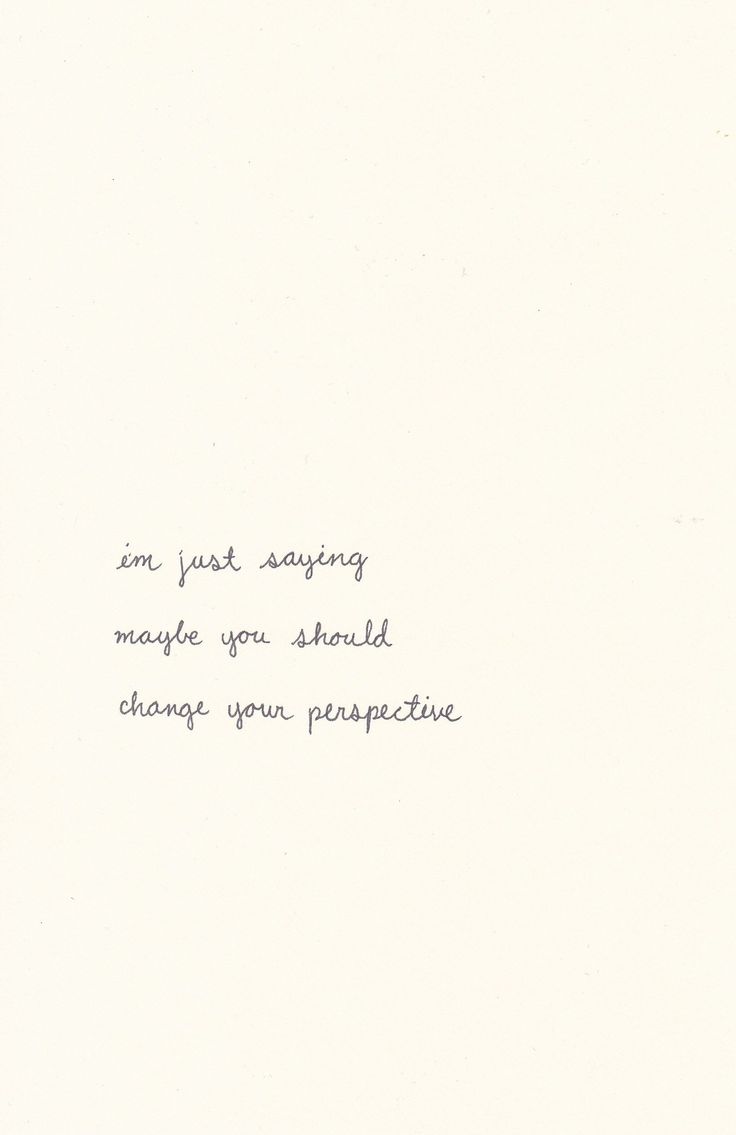 i'm just saying
maybe you should
change your perspective